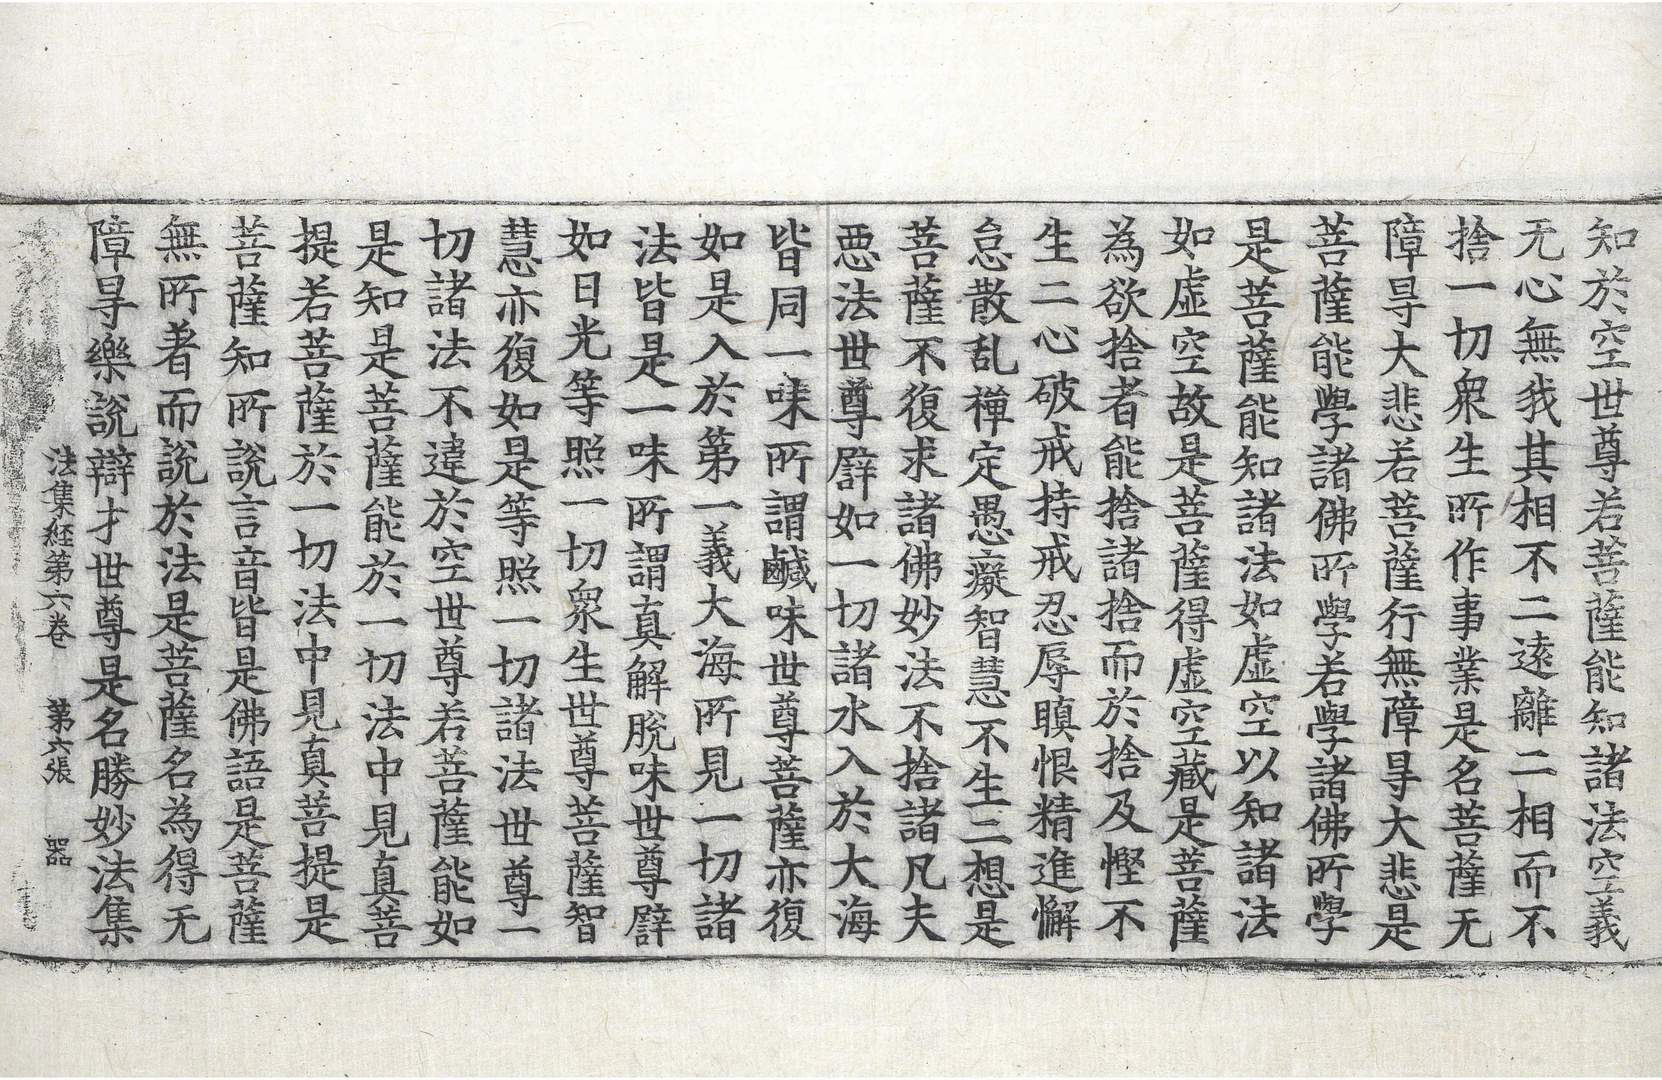 知於空世尊若菩薩能知諸法空義
无心無我其相不二遠離二相而不
捨一切衆生所作事業是名菩薩无
障㝵大悲若菩薩行無障㝵大悲是
菩薩能學諸佛所學若學諸佛所學
是菩薩能知諸法如虛空以知諸法
如虛空故是菩薩得虛空藏是菩薩
為欲捨者能捨諸捨而於捨及慳不
生二心破戒持戒忍辱瞋恨精進懈
怠散乱禅定愚癡智慧不生二想是
菩薩不復求諸佛妙法不捨諸凡夫
惡法世尊譬如一切諸水入於大海
皆同一味所謂鹹味世尊菩薩亦復
如是入於第一義大海所見一切諸
法皆是一味所謂真解脫味世尊譬
如日光等照一切衆生世尊菩薩智
慧亦復如是等照一切諸法世尊一
切諸法不違於空世尊若菩薩能如
是知是菩薩能於一切法中見真菩
提若菩薩於一切法中見真菩提是
菩薩知所說言音皆是佛語是菩薩
無所著而說於法是菩薩名為得无
障㝵樂說辯才世尊是名勝妙法集
法集経第六卷 第六張 器